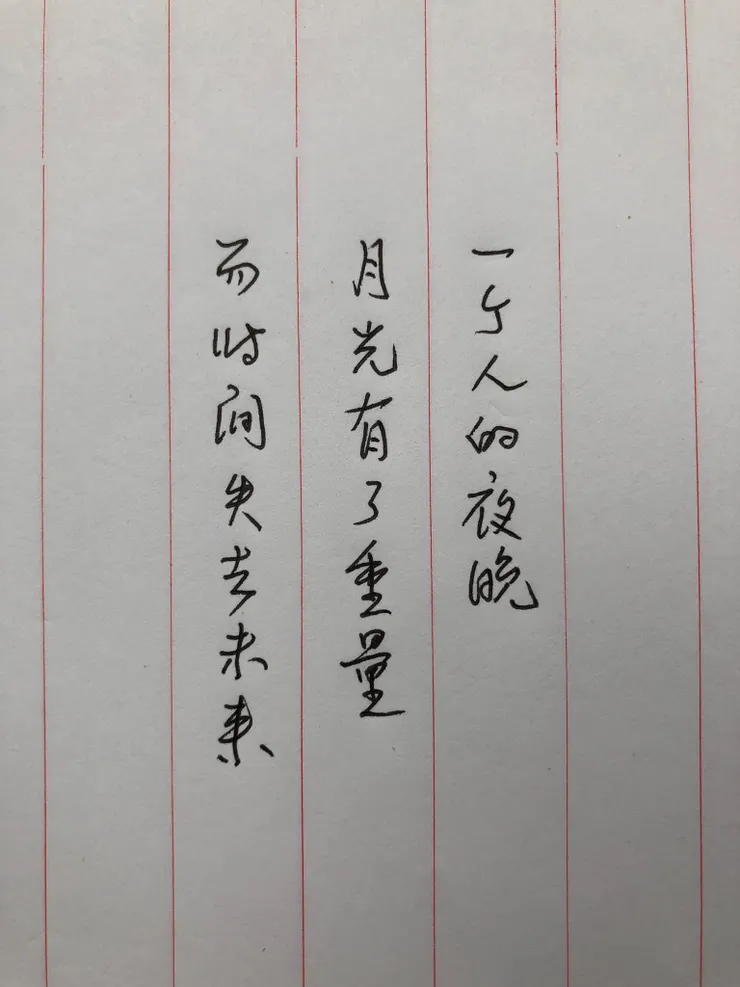 一个人的夜晚
月光有了重量
而时间失去未来